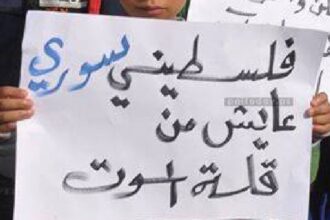 فلسطيني سوري
عايش من
قلة الموت